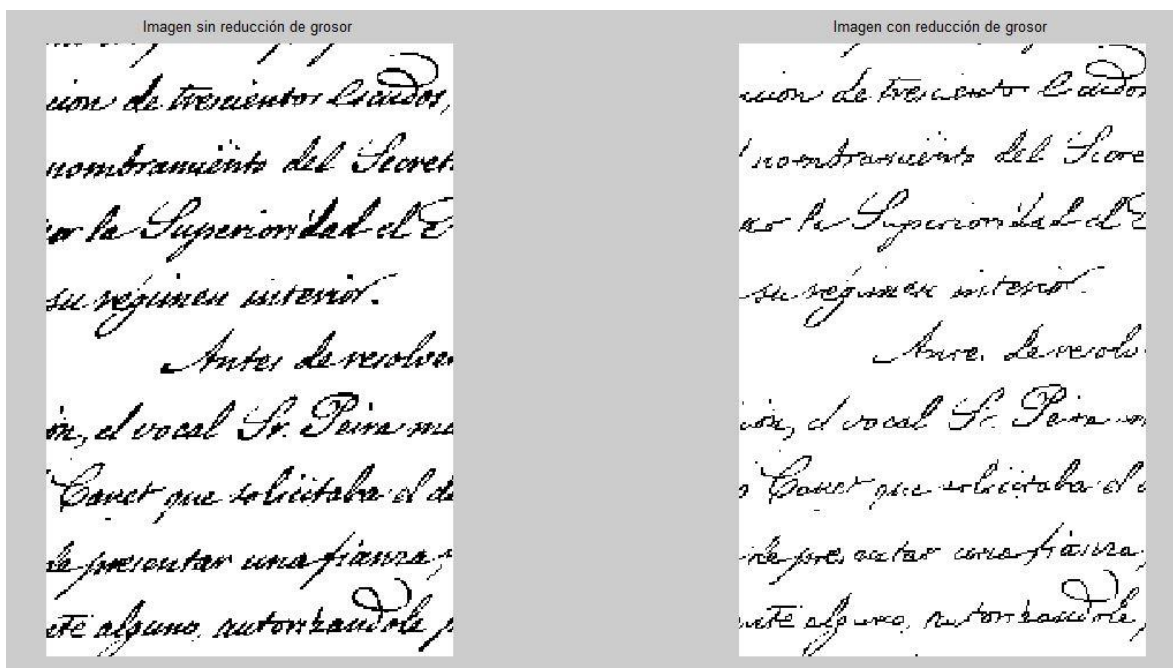 Imagen sin reducción de grosor
cion de trescientos Escudos,
nombramiento del Secret
por la Superioridad el E
su régimen interior.
Antes de resolver
ón, el vocal Sr. Peira ma
Canet que solicitaba el de
de presentar una fianza,
alguno, autorizandole p
Imagen con reducción de grosor
cion de trescientos Escudos
nombramiento del Secre
por la Superioridad el E
su régimen interior.
Antes de resolv
ción, el vocal Sr. Peira
Canet que solicitaba el
de presentar una fianza,
alguno, autorizandole,